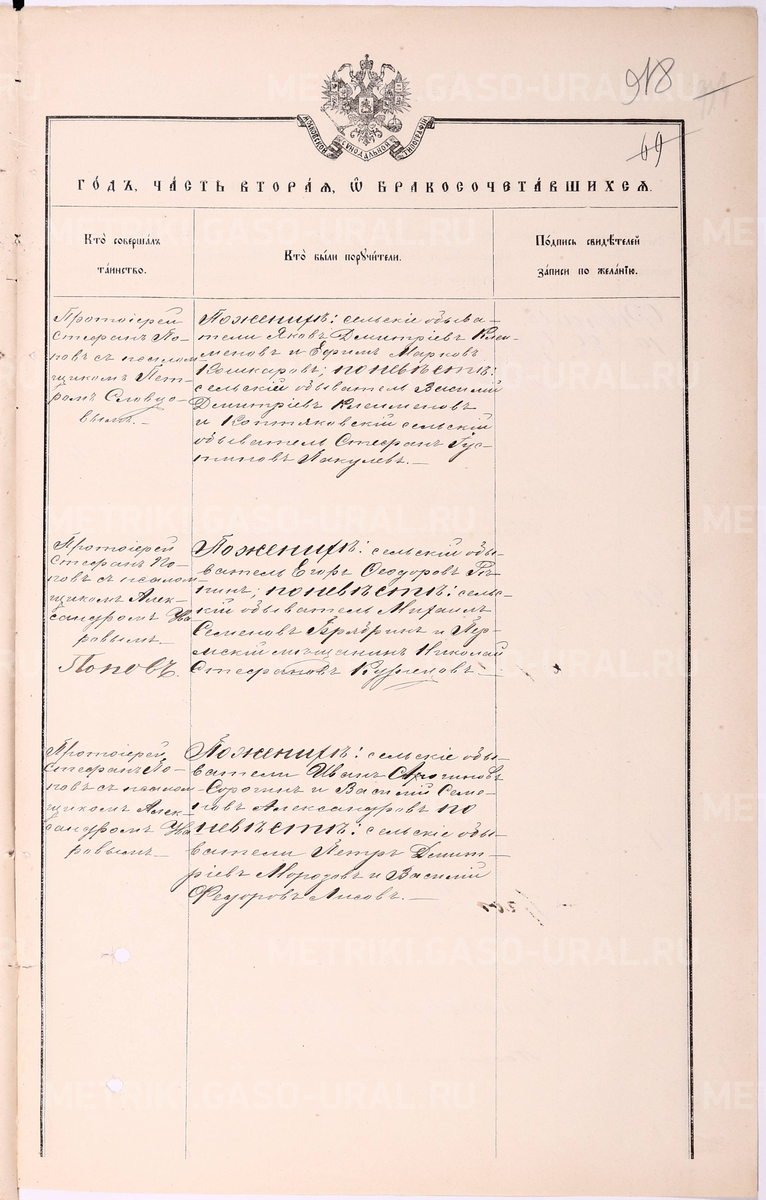 918
69
МОСКОВСКОЙ СѴНОДАЛЬНОЙ ТИПОГРАФІИ
ГО́ДЪ, ЧА́СТЬ ВТОРА́Я, Ѽ БРАКОСОЧЕТА́ВШИХСЯ.
Кто̀ совершалъ
та́инство.
Кто̀ бы́ли порꙋчи́тели.
По́дпись свидѣ́телей
за́писи по жела́нїю.
Протоіерей
Стефанъ По-
повъ съ псалом-
щикомъ Пет-
ромъ Словцо-
вымъ.—
По женихѣ: сельскіе обыва-
тели Яковъ Димитріевъ Клеи-
меновъ и Ефимъ Марковъ
Кошкаровъ; по невѣстѣ:
сельскій обыватель Василій
Димитріевъ Клеименовъ
и Коптяковскій сельскій
обыватель Стефанъ Гус-
тиновъ Пакулевъ.—
Протоіерей
Стефанъ По-
повъ съ псалом-
щикомъ Алек-
сандромъ Ува
ровымъ.—
Поповъ.
По женихѣ: сельскій обы-
ватель Егоръ Ѳеодоровъ Рѣ-
пинъ; по невѣстѣ: сель-
скій обыватель Михаилъ
Семеновъ и Пер-
мскій мѣщанинъ Николай
Стефановъ
Протоіерей
Стефанъ По-
повъ съ псалом-
щикомъ Алек-
сандромъ Ува
ровымъ.—
По женихѣ: сельскіе обы-
ватели Иванъ
Сорочинъ и Василій Семе-
новъ Александровъ по
невѣстѣ: сельскіе обы-
ватели Петръ Димит-
ріевъ Морозовъ и Василій
Ѳедоровъ Лисовъ.—
METRIKI.GASO-URAL.RU